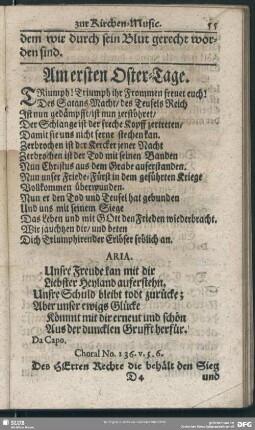 zur Kirchen-Music. 55
dem wir durch sein Blut gerecht wor-
den sind.
Am ersten Oster-Tage.
TRiumph! Triumph ihr Frommen freuet euch!
Des Satans Macht/ des Teufels Reich
Ist nun gedämpfft/ ist nun zerstöhret/
Der Schlange ist der freche Kopff zertreten/
Damit sie uns nicht ferne stechen kan.
Zerbrochen ist der Kercker jener Nacht
Zerbrochen ist der Tod mit seinen Banden
Nun Christus aus dem Grabe auferstanden.
Nun unser Friede-Fürst in dem geführten Kriege
Vollkommen überwunden.
Nun er den Tod und Teufel hat gebunden
Und uns mit seinem Siege
Das Leben und mit GOtt den Frieden wiederbracht.
Wir jauchzen dir/ und beten
Dich Triumphirender Erlöser frölich an.
ARIA.
Unsre Freude kan mit dir
Liebster Heyland auferstehn.
Unsre Schuld bleibt todt zurücke;
Aber unser ewigs Glücke
Kömmt mit dir erneut und schön
Aus der duncklen Grufft herfür.
Da Capo.
Choral No. 136. v. 5. 6.
Des HErren Rechte die behält den Sieg
D4 und
SLUB
DFG